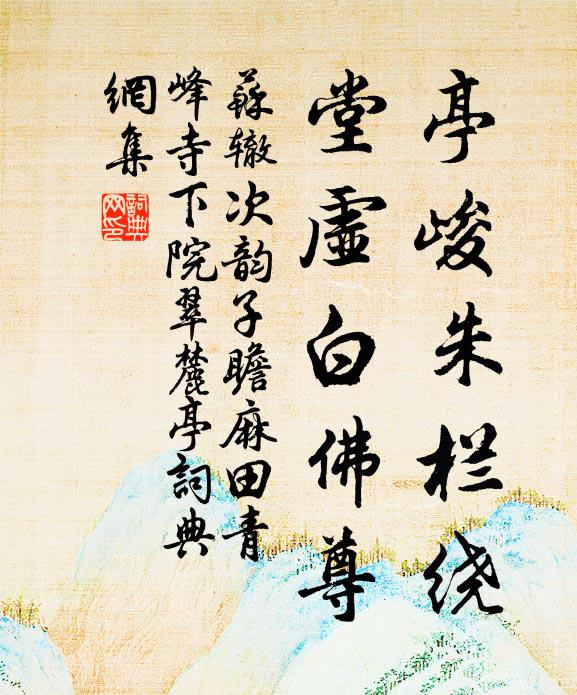 亭峻朱栏绕
堂虚白佛尊
蘇辙次韵子瞻麻田青
峰寺下院翠麓亭詞典
網集
詞典
网印